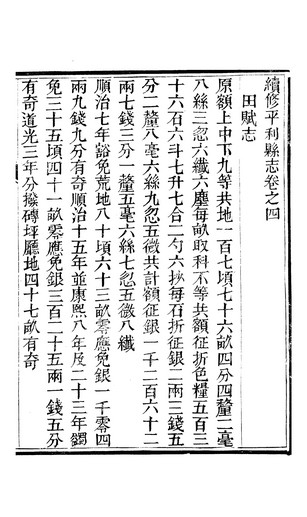 續修平利縣志卷之四
田賦志
原額上中下九等共地一百七頃七十六畝四分四釐二毫
八絲三忽六纖六塵每畝取科不等共額征折色糧五百三
十六石六斗七升七合二勺六抄每石折征銀二兩三錢五
分二釐八毫六絲九忽五微共計額征銀一千二百六十二
兩七錢三分一釐五毫六絲七忽五微八纖
順治七年豁免荒地八十頃六十三畝零應免銀一千零四
兩九錢九分有奇順治十五年並康熙八年及二十三年蠲
免三十五頃四十一畝零應免銀三百二十五兩一錢五分
有奇道光三年分撥磚坪廳地四十七畝有奇